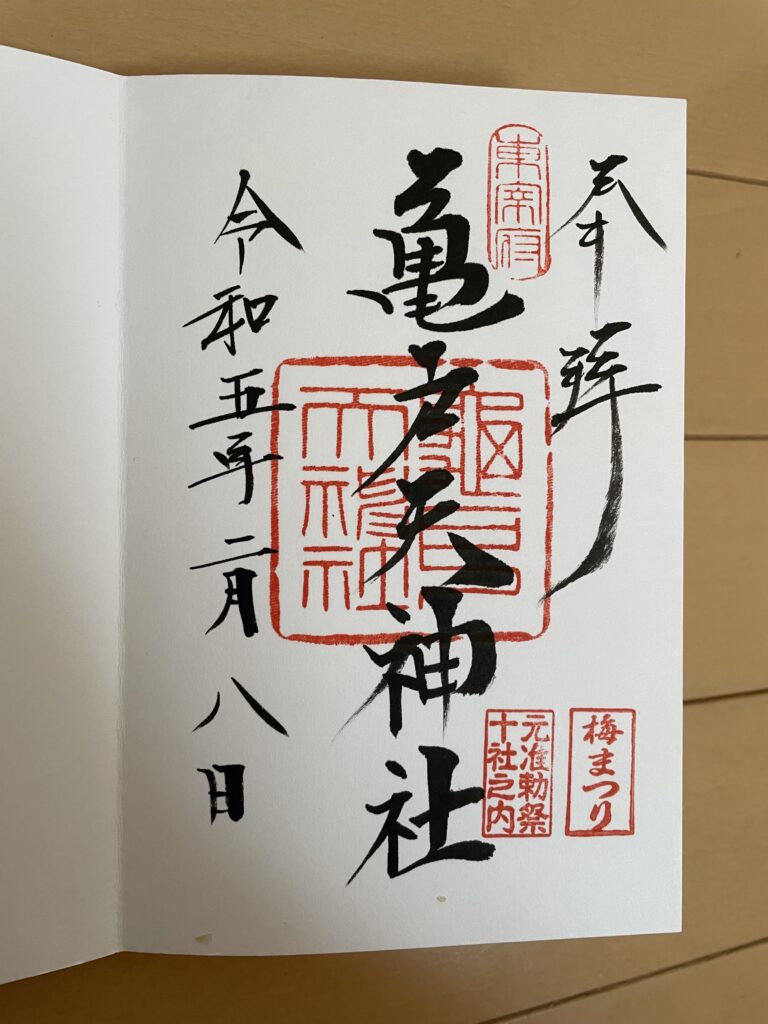 奉拝
東宰府
亀戸天神社
龜戸天神社
元准勅祭
十社之内
梅まつり
令和五年二月八日